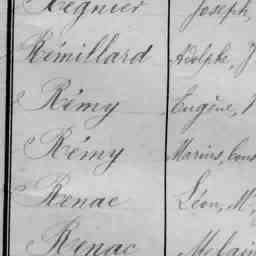 Régnier Joseph,
Rémillard Adolphe, J
Rémy Eugène,
Rémy Marius,
Renac Léon, M
Renac